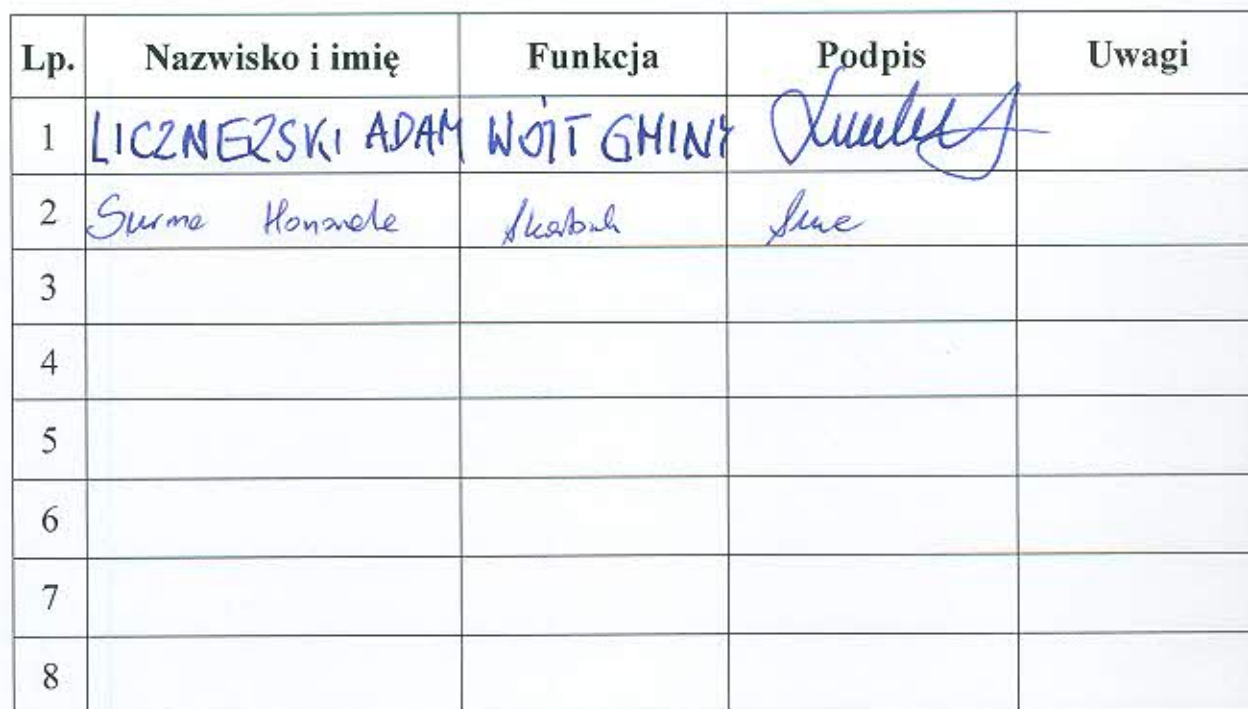 Lp. Nazwisko i imię Funkcja Podpis Uwagi
1 LICZNERSKI ADAM WÓJT GMINY
2 Surma Honorata Skarbnik
3
4
5
6
7
8